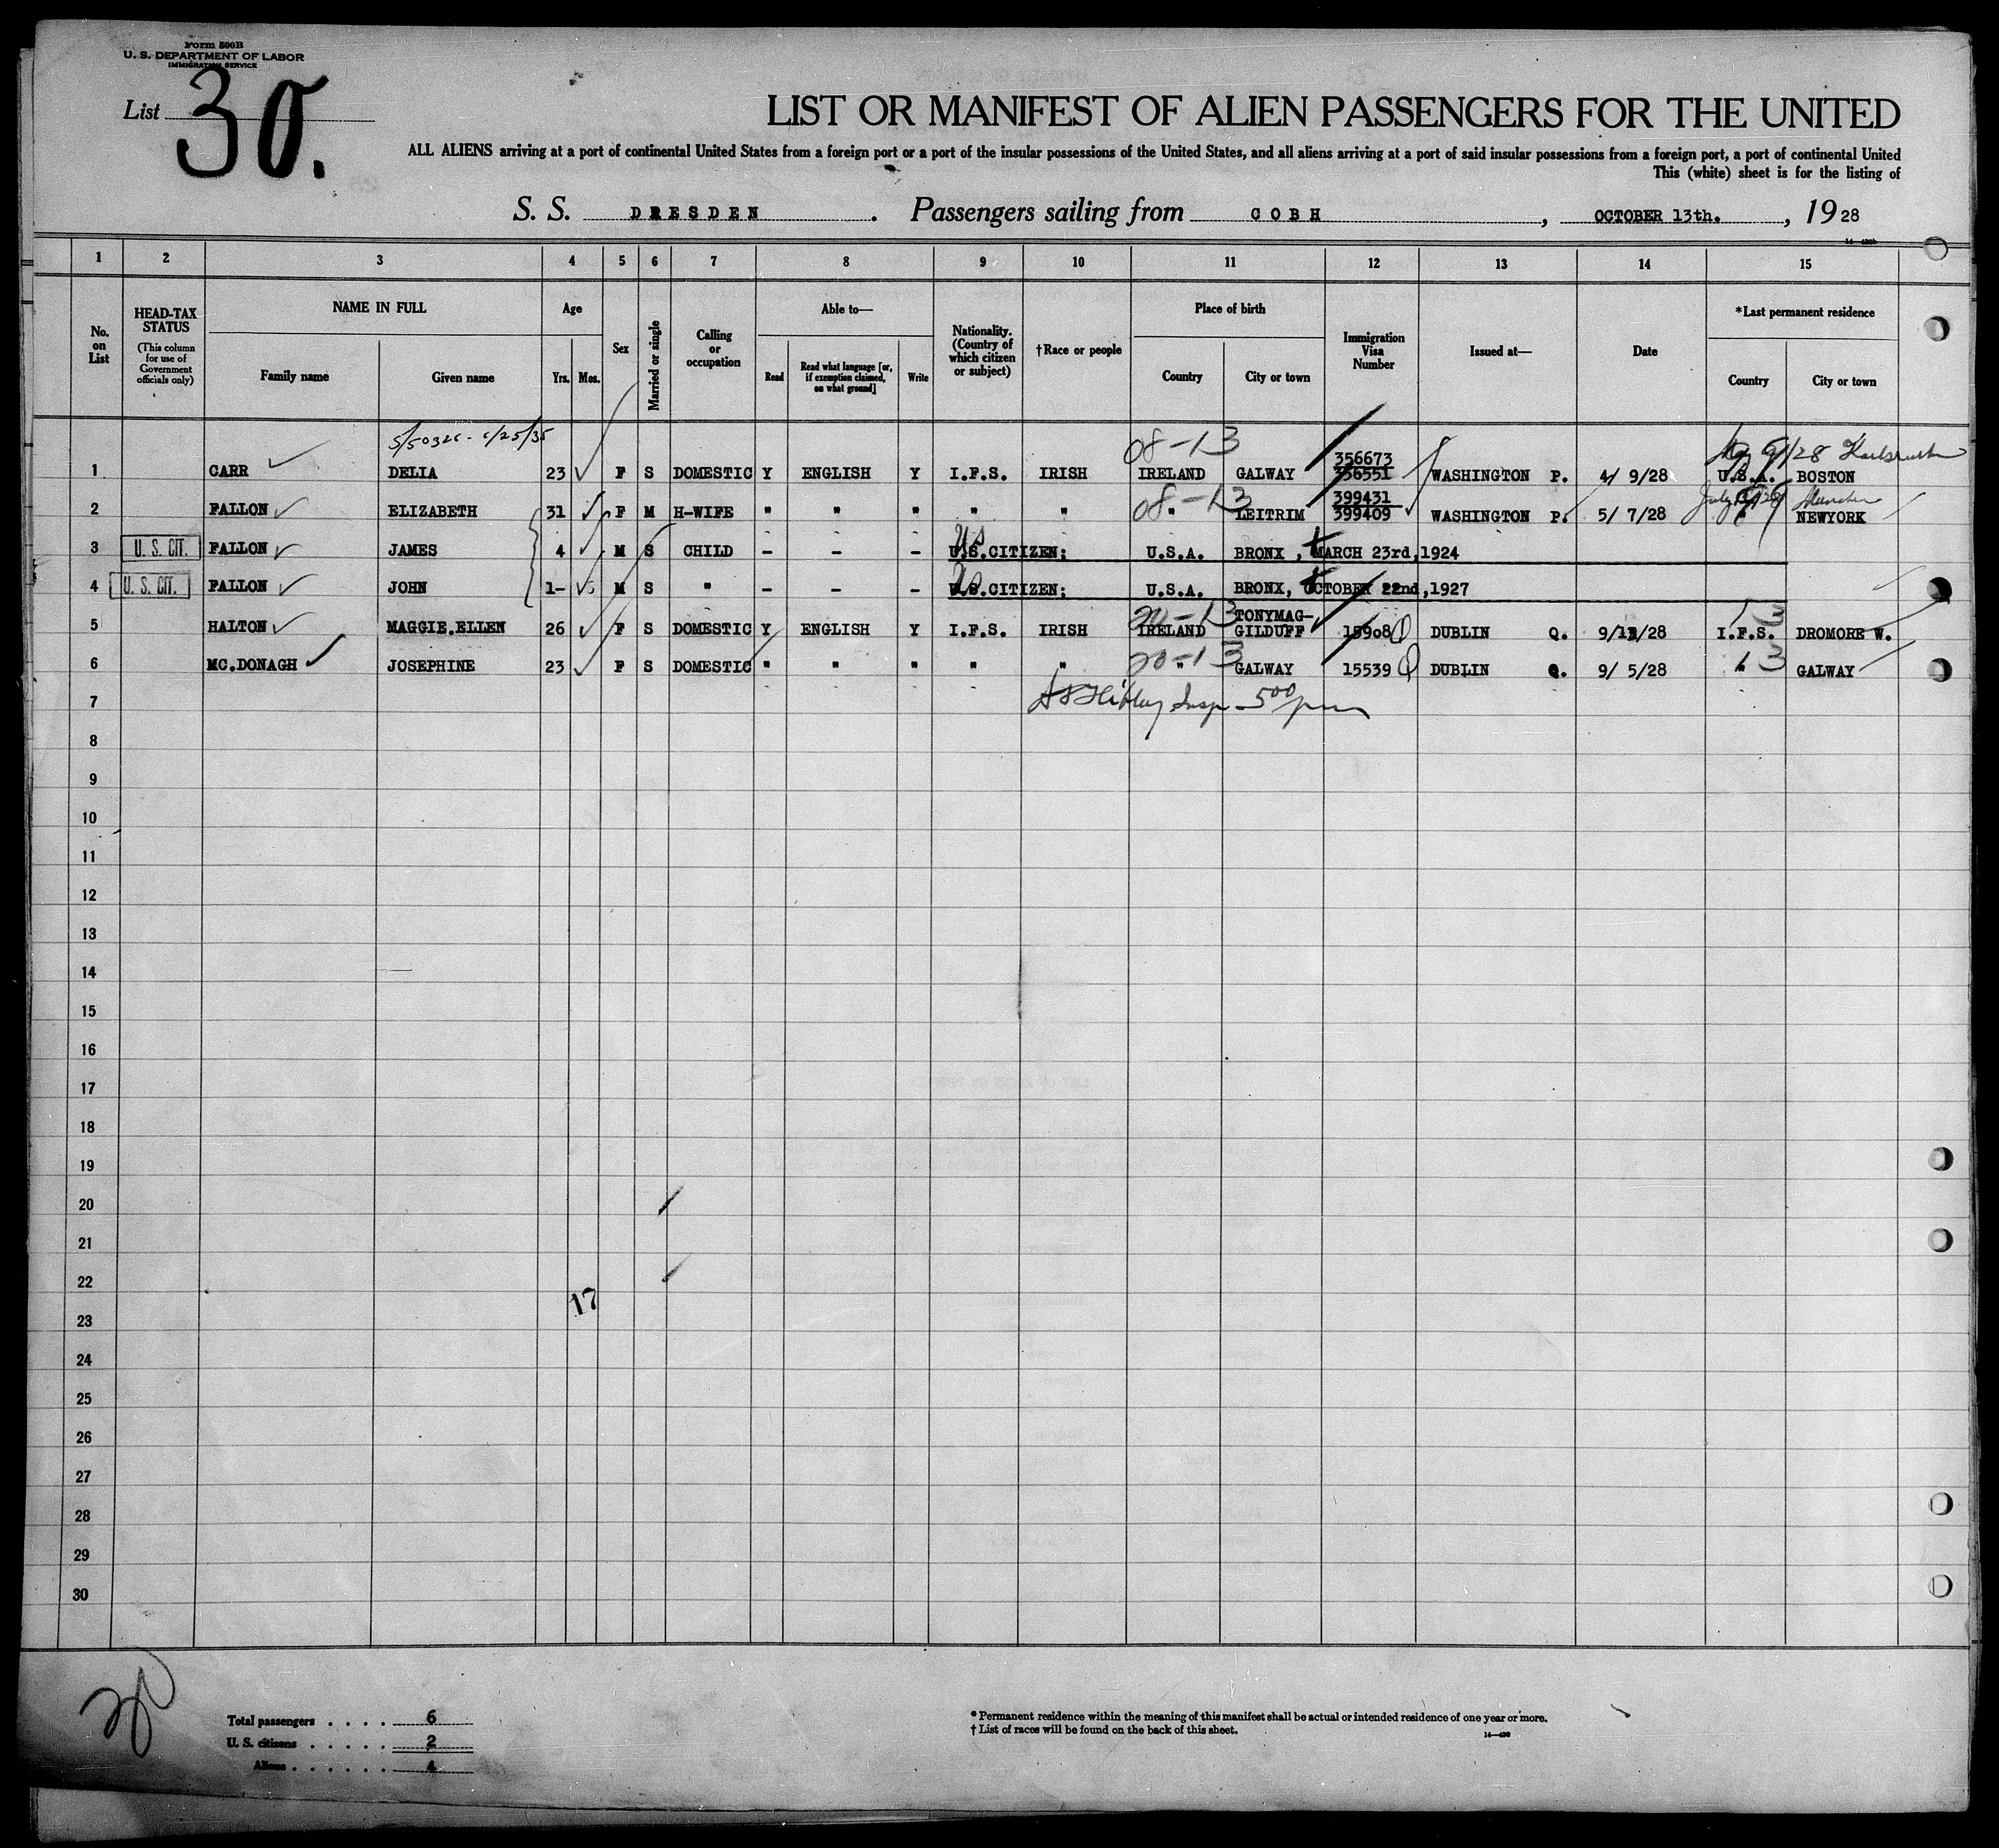 Form 500B
U. S. DEPARTMENT OF LABOR
IMMIGRATION SERVICE
List 30.
LIST OR MANIFEST OF ALIEN PASSENGERS FOR THE UNITED
ALL ALIENS arriving at a port of continental United States from a foreign port or a port of the insular possessions of the United States, and all aliens arriving at a port of said insular possessions from a foreign port, a port of continental United
This (white) sheet is for the listing of
S. S. DRESDEN . Passengers sailing from COBH , OCTOBER 13th. , 1928
1 2 3 4 5 6 7 8 9 10 11 12 13 14 15
No. on List
HEAD-TAX STATUS
(This column for use of Government officials only)
NAME IN FULL
Family name
Given name
Age
Yrs. Mos.
Sex
Married or single
Calling or occupation
Able to—
Read
Read what language [or, if exemption claimed, on what ground]
Write
Nationality. (Country of which citizen or subject)
†Race or people
Place of birth
Country
City or town
Immigration Visa Number
Issued at—
Date
*Last permanent residence
Country
City or town
08-13 9/28 Karlsruhe
356673
1 CARR DELIA 23 F S DOMESTIC Y ENGLISH Y I.F.S. IRISH IRELAND GALWAY 356551 WASHINGTON P. 4/ 9/28 U.S.A. BOSTON
08-13 399431 July München
2 FALLON ELIZABETH 31 F M H-WIFE " " " " " " LEITRIM 399409 WASHINGTON P. 5/ 7/28 " NEWYORK
US
3 U. S. CIT. FALLON JAMES 4 M S CHILD - - - U.S.CITIZEN: U.S.A. BRONX , MARCH 23rd,1924
US
4 U. S. CIT. FALLON JOHN 1- M S " - - - U.S.CITIZEN: U.S.A. BRONX, OCTOBER 22nd,1927
20-13 TONYMAG- 13
5 HALTON MAGGIE.ELLEN 26 F S DOMESTIC Y ENGLISH Y I.F.S. IRISH IRELAND GILDUFF 15908 DUBLIN Q. 9/12/28 I.F.S. DROMORE W.
20-13 13
6 MC.DONAGH JOSEPHINE 23 F S DOMESTIC " " " " " " GALWAY 15539 DUBLIN Q. 9/ 5/28 " GALWAY
7 Insp 500 pm
8
9
10
11
12
13
14
15
16
17
18
19
20
21
22
17
23
24
25
26
27
28
29
30
Total passengers . . . . 6
U. S. citizens . . . . . 2
Aliens . . . . . . 4
* Permanent residence within the meaning of this manifest shall be actual or intended residence of one year or more.
† List of races will be found on the back of this sheet.